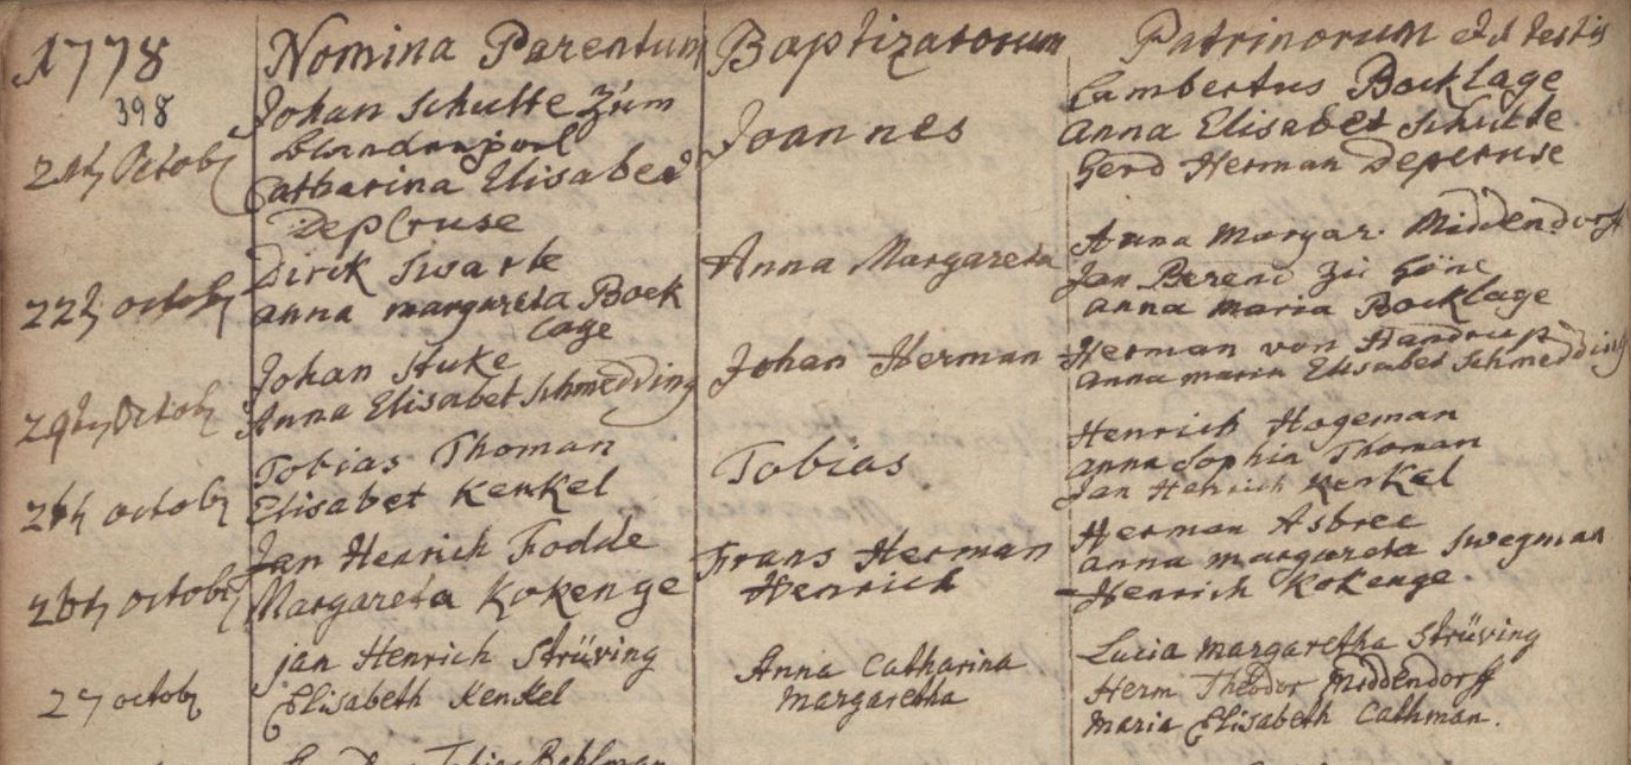 1778 Nomina Parentum Baptizatorum Patrinorum et testis
398
21th Octob Johan Schulte zum Joannes Lambertus Bocklage
Catharina Elisabed Anna Elisabet Schulte
DepCruse Gerd Herman Depcruse
22th octob Dirck Swarte Anna Margareta Anna Margar. Middendorff
anna margareta Bock Jan Berend zu Höne
lage anna maria Bocklage
Octob Johan Stuke Johan Herman Herman von Handrup
Anna Elisabet Schmedding anna maria Elisabet Schmedding
octob Tobias Thoman Tobias Henrich Hogeman
Elisabet Kenkel anna Sophia Thoman
Jan Henrich Kenkel
26th octob Jan Henrich Fodde Frans Herman Herman Asbree
Margareta Kokenge Henrich anna margareta Swegman
Henrich Kokenge.
27 octob jan Henrich Strüving Anna Catharina Lucia margaretha Strüving
Elisabeth Kenkel margaretha Herm Theodor Middendorff
Maria Elisabeth Cathman.
Tobias